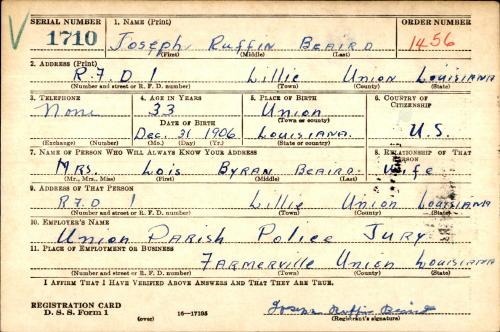 SERIAL NUMBER 1. NAME (Print) ORDER NUMBER
V 1710 Joseph Ruffin Beaird 1456
(First) (Middle) (Last)
2. ADDRESS (Print)
R.F.D 1 Lillie Union Louisiana
(Number and street or R. F. D. number) (Town) (County) (State)
3. TELEPHONE 4. AGE IN YEARS 5. PLACE OF BIRTH 6. COUNTRY OF CITIZENSHIP
None 33 Union
DATE OF BIRTH (Town or county)
Dec. 31 1906 Louisiana. U.S.
(Exchange) (Number) (Mo.) (Day) (Yr.) (State or country)
7. NAME OF PERSON WHO WILL ALWAYS KNOW YOUR ADDRESS 8. RELATIONSHIP OF THAT PERSON
Mrs. Lois Byran Beaird Wife
(Mr., Mrs., Miss) (First) (Middle) (Last)
9. ADDRESS OF THAT PERSON
R.F.D 1 Lillie Union Louisiana
(Number and street or R. F. D. number) (Town) (County) (State)
10. EMPLOYER'S NAME
Union Parish Police Jury
11. PLACE OF EMPLOYMENT OR BUSINESS
Farmerville Union Louisiana
(Number and street or R. F. D. number) (Town) (County) (State)
I AFFIRM THAT I HAVE VERIFIED ABOVE ANSWERS AND THAT THEY ARE TRUE.
REGISTRATION CARD
D. S. S. Form 1 (over) 16-17105 Joseph Ruffin Beaird
(Registrant's signature)